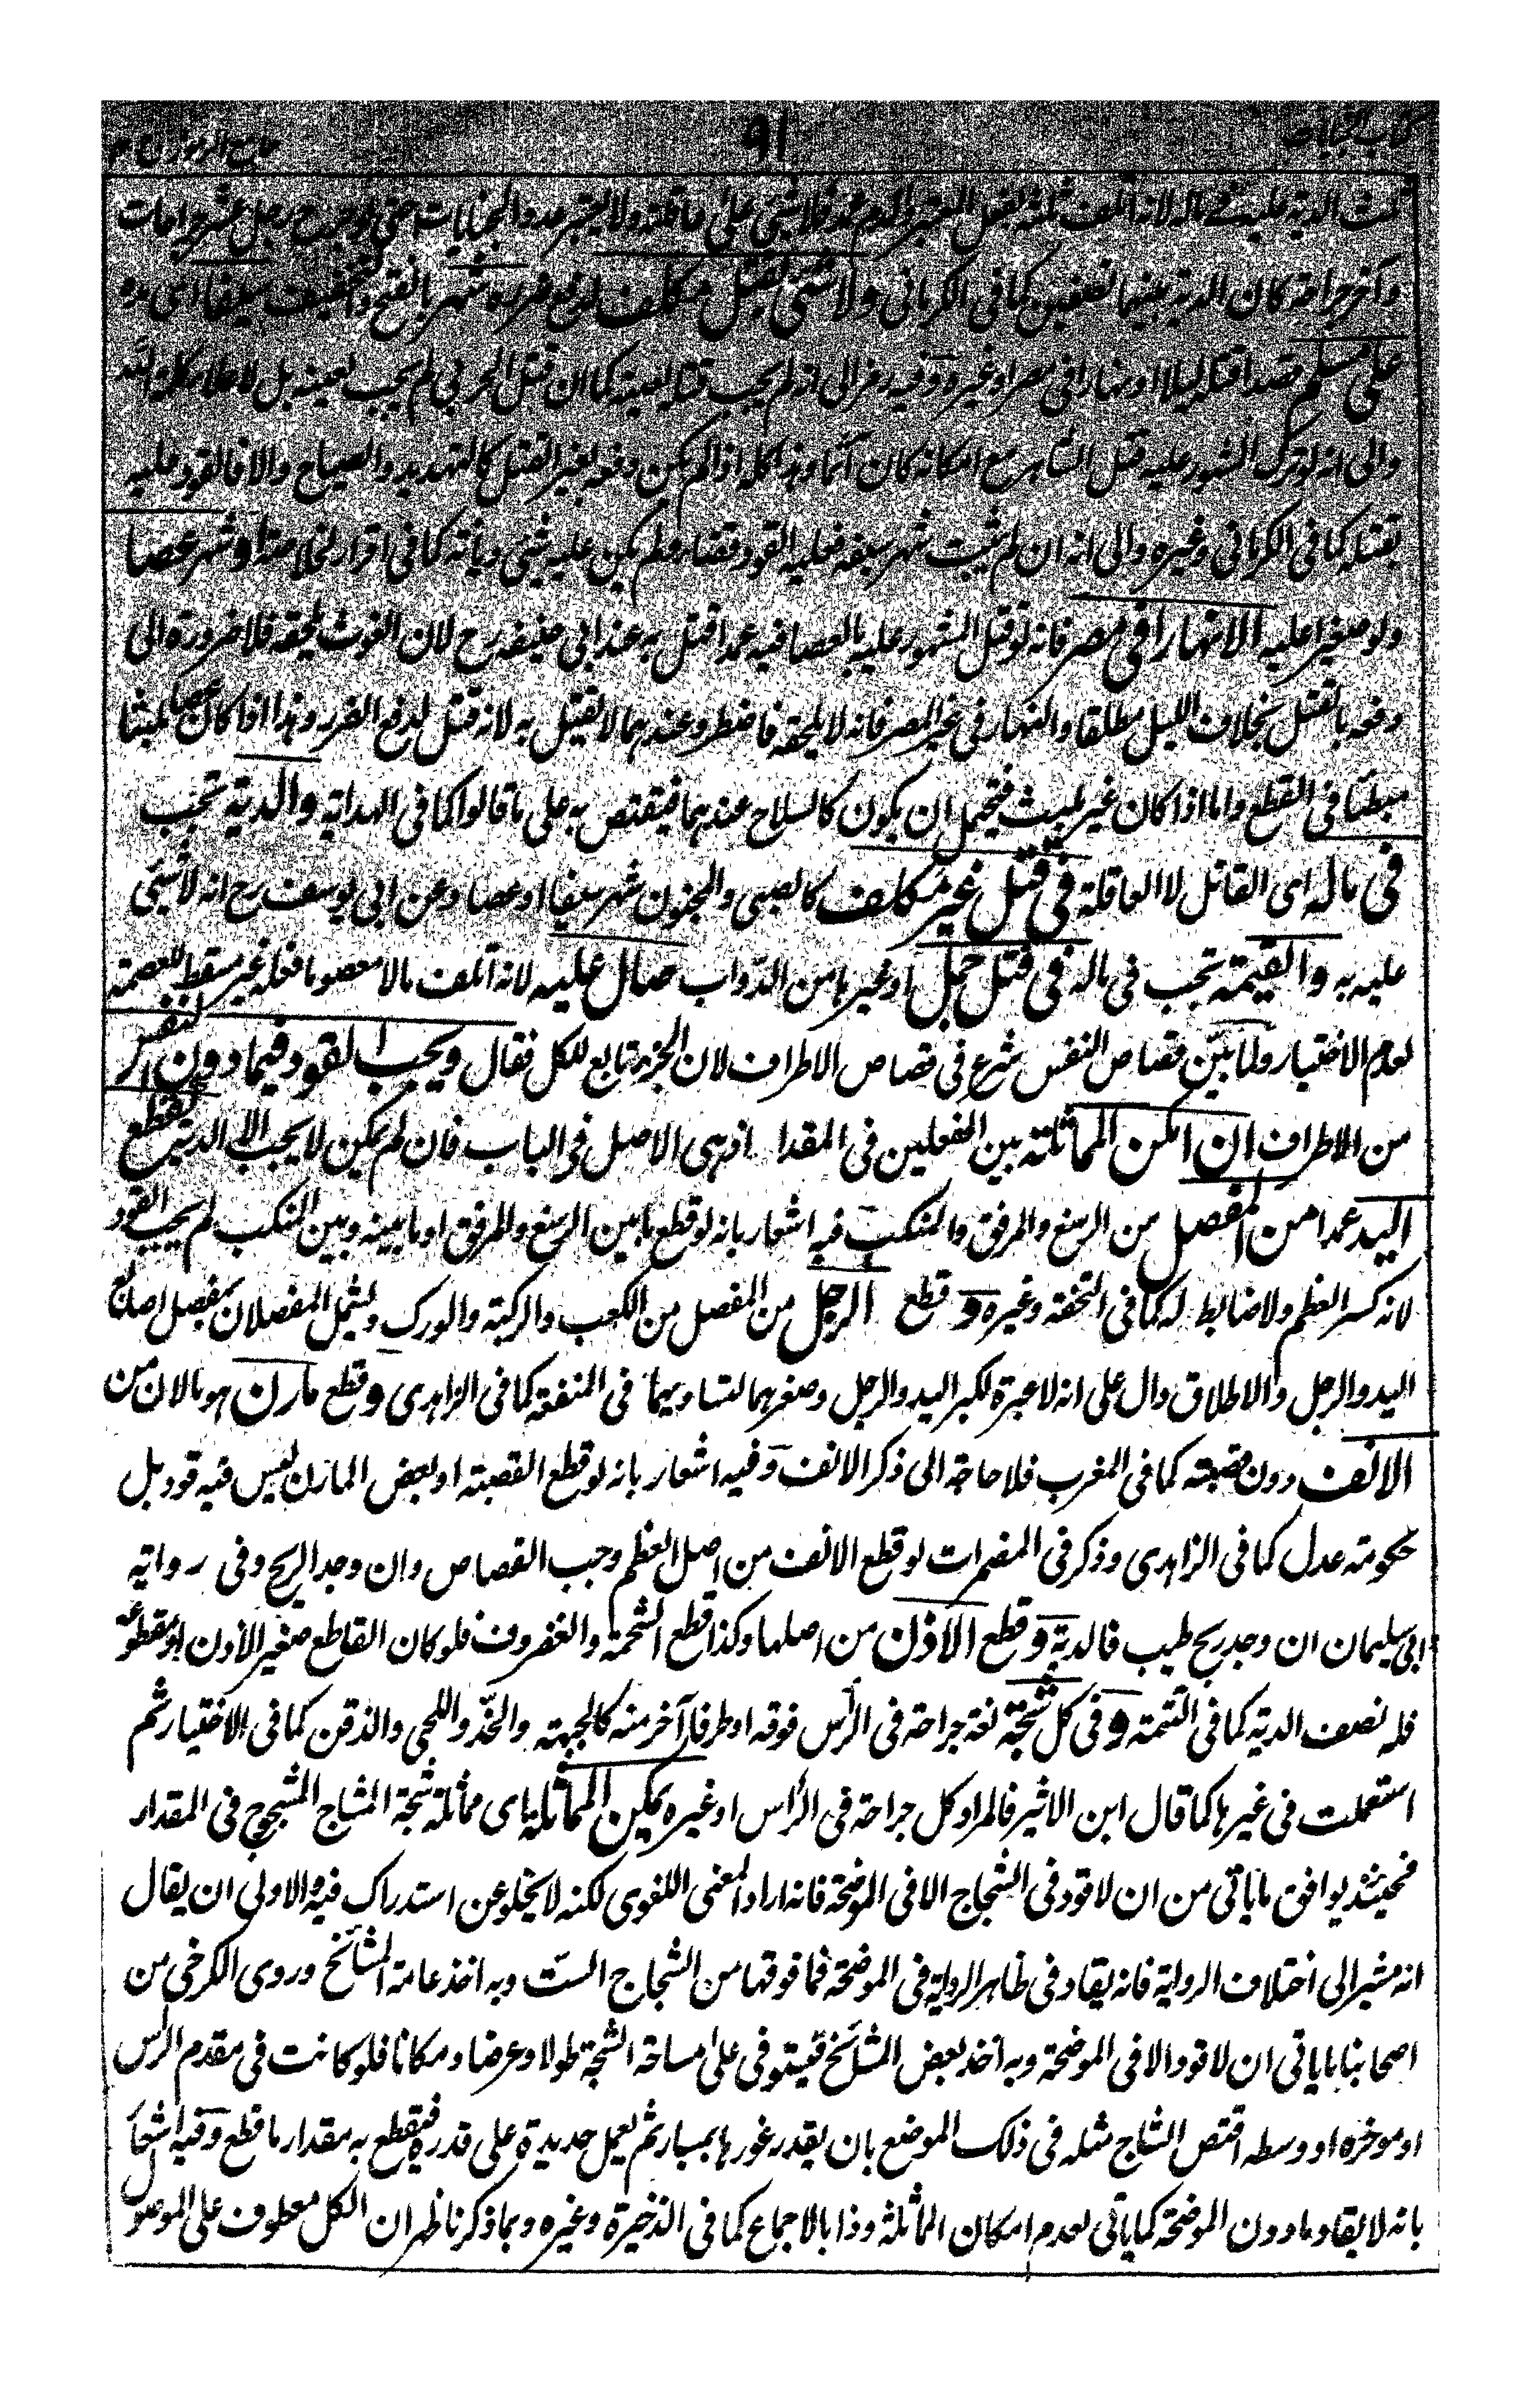 كتاب الجنايات ٩١ جامع الرموز ج ٢
ثلث الدية عليه في ماله لانه اتلف ثلثه بفعل المعتبر والدم عمد فلا شئ على عاقلته ولا يعتبر عدد الجنايات حتى لو جرح رجل عشر جراحات
وآخر جراحة كان الدية بينهما نصفين كما فى الكرمانى ولا شئ بقتل مكلف لدفع ضرره شهر بالفتح والتخفيف سيفا اى مده
على مسلم قصدا قتله ليلا او نهارا فى مصر او غيره وفيه رمز الى انه لم يجب قتله لعينه كما ان قتل الحربى لم يجب لعينه بل لاعلاء كلمة الله
والى انه لو ترك المشهور عليه قتل الشاهر مع امكانه كان آثما وهذا كله اذا لم يكن دفعه بغير القتل كالتهديد والصياح والا فالقود عليه
بقتله كما فى الكرمانى وغيره والى انه ان لم يثبت شهر سيفه فعليه القود قضاء ولم يكن عليه شئ ديانة كما فى اقرار الخلاصة او شهر عصا
ولو صغيرا عليه الا نهارا فى مصر فانه لو قتل المشهور عليه بالعصا فيه عمدا قتل به عند ابى حنيفه رح لان الغوث يلحقه فلا ضرورة الى
دفعه بالقتل بخلاف الليل مطلقا والنهار فى غير المصر فانه لا يلحقه فاضطر وعندهما لا يقتل به لانه قتل لدفع الضرر وهذا اذا كان عصا ملبثا
مبطئا فى القطع واما اذا كان غير ملبث فيحتمل ان يكون كالسلاح عندهما فيقتص به على ما قالوا كما فى الهداية والدية تجب
فى ماله اى القاتل لا العاقلة فى قتل غير مكلف كالصبى والمجنون شهر سيفا او عصا وعن ابى يوسف رح انه لا شئ
عليه به والقيمة تجب فى ماله فى قتل جمل او غيرها من الدواب صال عليه لانه اتلف مالا معصوما فعله غير مسقط للعصمة
لعدم الاختيار ولما بيّن قصاص النفس شرع فى قصاص الاطراف لان الجزء تابع للكل فقال ويجب القود فيما دون النفس
من الاطراف ان امكن المماثلة بين الفعلين فى المقدا اذ هى الاصل فى الباب فان لم يمكن لا يجب الا الدية كقطع
اليد عمدا من المفصل من الرسغ والمرفق والمنكب فيه اشعار بانه لو قطع ما بين الرسغ والمرفق او ما بينه وبين المنكب لم يجب القود
لانه كسر العظم ولا ضابط له كما فى التحفة وغيره و قطع الرجل من المفصل من الكعب والركبة والورك ويشمل المفصلان مفصل اصابع
اليد والرجل والاطلاق دال على انه لا عبرة لكبر اليد والرجل وصغرهما لتساويهما فى المنفعة كما فى الزاهدى و قطع مارن هو مالان من
الانف دون قصبته كما فى المغرب فلا حاجة الى ذكر الانف وفيه اشعار بانه لو قطع القصبة او بعض المارن ليس فيه قود بل
حكومة عدل كما فى الزاهدى وذكر فى المضمرات لو قطع الانف من اصل العظم وجب القصاص وان وجد الريح وفى رواية
ابى سليمان ان وجد ريح طيب فالدية و قطع الاذن من اصلها وكذا قطع الشحمة والغضروف فلو كان القاطع صغير الاذن او مقطوعة
فله نصف الدية كما فى التتمة وفى كل شجّة لغة جراحة فى الرأس فوقه او طرفا آخر منه كالجبهة والخدّ واللحى والذقن كما فى الاختيار ثم
استعملت فى غيرها كما قال ابن الاثير فالمراد كل جراحة فى الرأس او غيره يمكن المماثلة اى مماثلة شجة الشاج المشجوج فى المقدار
فحينئذ يوافق ما ياتى من ان لا قود فى الشجاج الا فى الموضحة فانه اراد المعنى اللغوى لكنه لا يخلو عن استدراك فيه والاولى ان يقال
انه مشير الى اختلاف الرواية فانه يقاد فى ظاهر الرواية فى الموضحة فما فوقها من الشجاج الستّ وبه اخذ عامة المشائخ وروى الكرخى من
اصحابنا ما ياتى ان لا قود الا فى الموضحة وبه اخذ بعض المشائخ فيستوفى على مساحة الشجة طولا وعرضا ومكانا فلو كانت فى مقدم الرأس
او موخره او وسطه اقتص الشاج مثله فى ذلك الموضع بان يقدر غورها بمسبار ثم يعمل حديدة على قدره فيقطع به مقدار ما قطع وفيه اشعار
بانه لا يقاد ما دون الموضحة كما ياتى لعدم امكان المماثلة وذا بالاجماع كما فى الذخيرة وغيره وبما ذكرنا ظهر ان الكل معطوف على الموصول